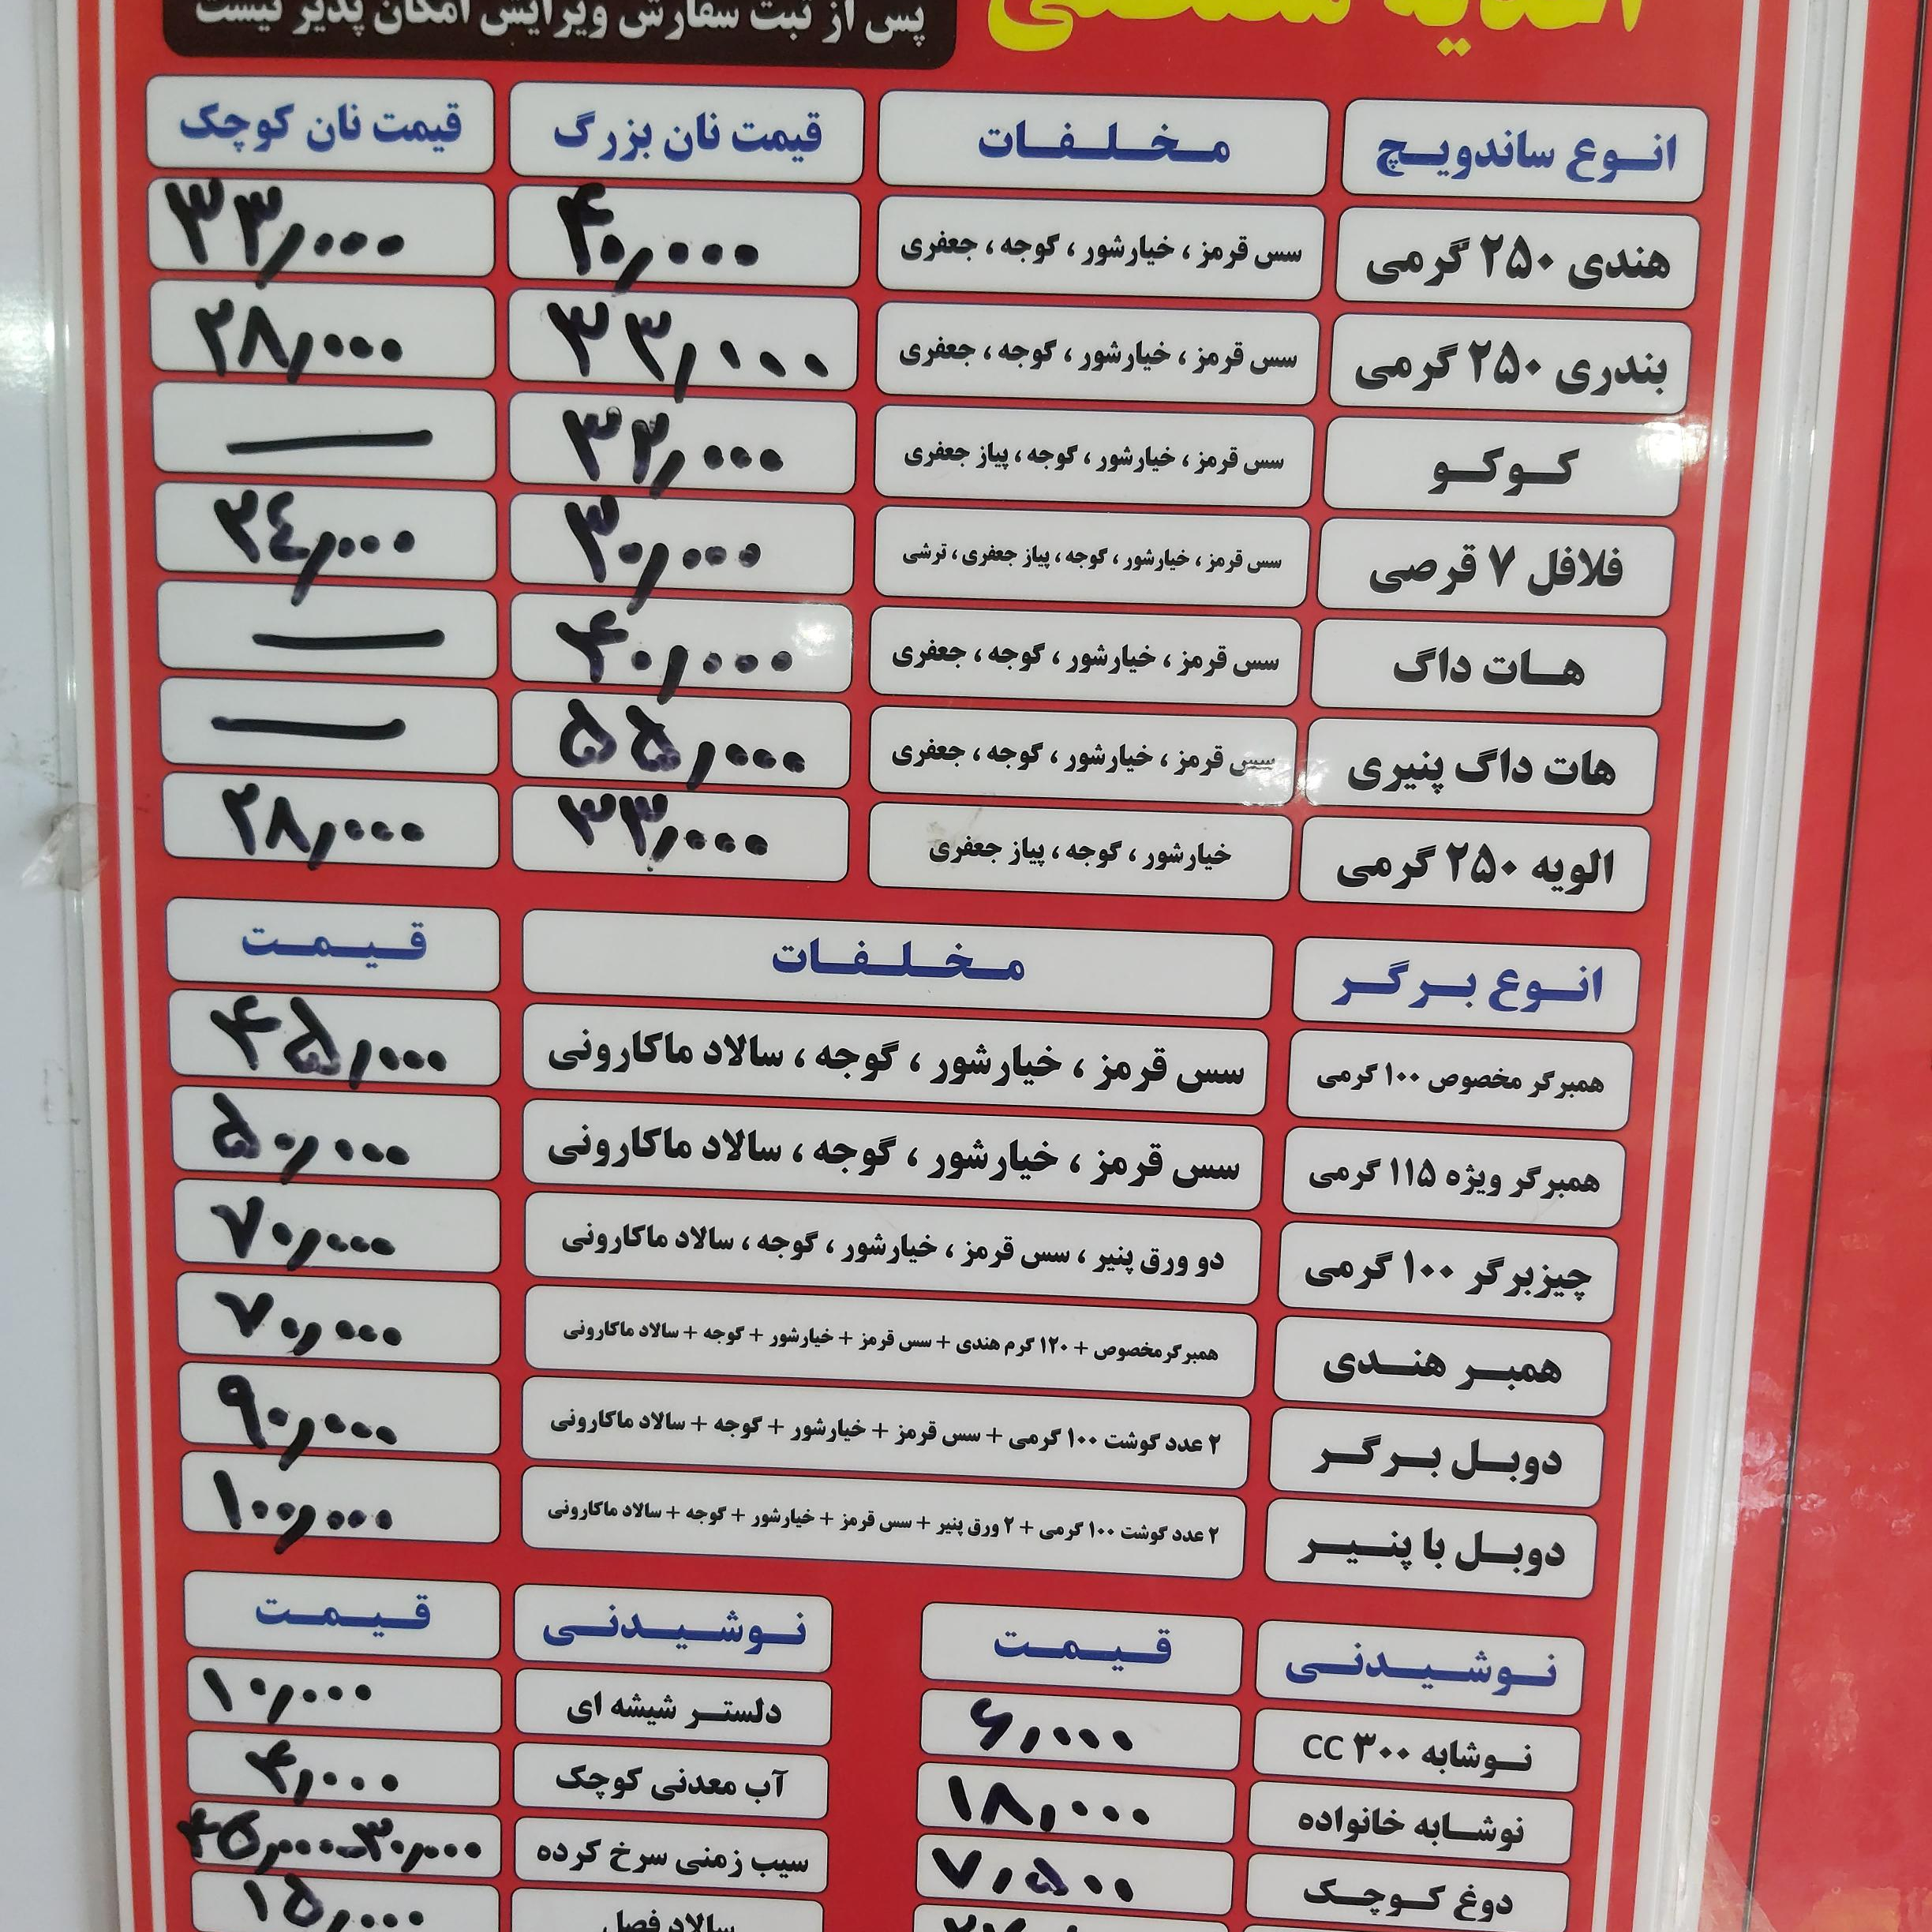 پس از ثبت سفارش ویرایش امکان پذیر نیست
انوع ساندویچ مخلفات قیمت نان بزرگ قیمت نان کوچک
هندی ۲۵۰ گرمی سس قرمز ، خیارشور ، گوجه ، جعفری ۴۰,۰۰۰ ۳۳,۰۰۰
بندری ۲۵۰ گرمی سس قرمز ، خیارشور ، گوجه ، جعفری ۳۳,۰۰۰ ۲۸,۰۰۰
کوکو سس قرمز ، خیارشور ، گوجه ، پیاز جعفری ۳۳,۰۰۰ —
فلافل ۷ قرصی سس قرمز ، خیارشور ، گوجه ، پیاز جعفری ، ترشی ۳۰,۰۰۰ ۲۴,۰۰۰
هات داگ سس قرمز ، خیارشور ، گوجه ، جعفری ۴۰,۰۰۰ —
هات داگ پنیری سس قرمز ، خیارشور ، گوجه ، جعفری ۵۵,۰۰۰ —
الویه ۲۵۰ گرمی خیارشور ، گوجه ، پیاز جعفری ۳۳,۰۰۰ ۲۸,۰۰۰
انوع برگر مخلفات قیمت
همبرگر مخصوص ۱۰۰ گرمی سس قرمز ، خیارشور ، گوجه ، سالاد ماکارونی ۴۵,۰۰۰
همبرگر ویژه ۱۱۵ گرمی سس قرمز ، خیارشور ، گوجه ، سالاد ماکارونی ۵۰,۰۰۰
چیزبرگر ۱۰۰ گرمی دو ورق پنیر ، سس قرمز ، خیارشور ، گوجه ، سالاد ماکارونی ۷۰,۰۰۰
همبر هندی همبرگرمخصوص + ۱۲۰ گرم هندی + سس قرمز + خیارشور + گوجه + سالاد ماکارونی ۷۰,۰۰۰
دوبل برگر ۲ عدد گوشت ۱۰۰ گرمی + سس قرمز + خیارشور + گوجه + سالاد ماکارونی ۹۰,۰۰۰
دوبل با پنیر ۲ عدد گوشت ۱۰۰ گرمی + ۲ ورق پنیر + سس قرمز + خیارشور + گوجه + سالاد ماکارونی ۱۰۰,۰۰۰
نوشیدنی قیمت نوشیدنی قیمت
نوشابه ۳۰۰ CC ۶,۰۰۰ دلستر شیشه ای ۱۰,۰۰۰
نوشابه خانواده ۱۸,۰۰۰ آب معدنی کوچک ۴,۰۰۰
دوغ کوچک ۷,۵۰۰ سیب زمنی سرخ کرده ۴۵,۰۰۰-۳۰,۰۰۰
سالاد فصل ۱۵,۰۰۰